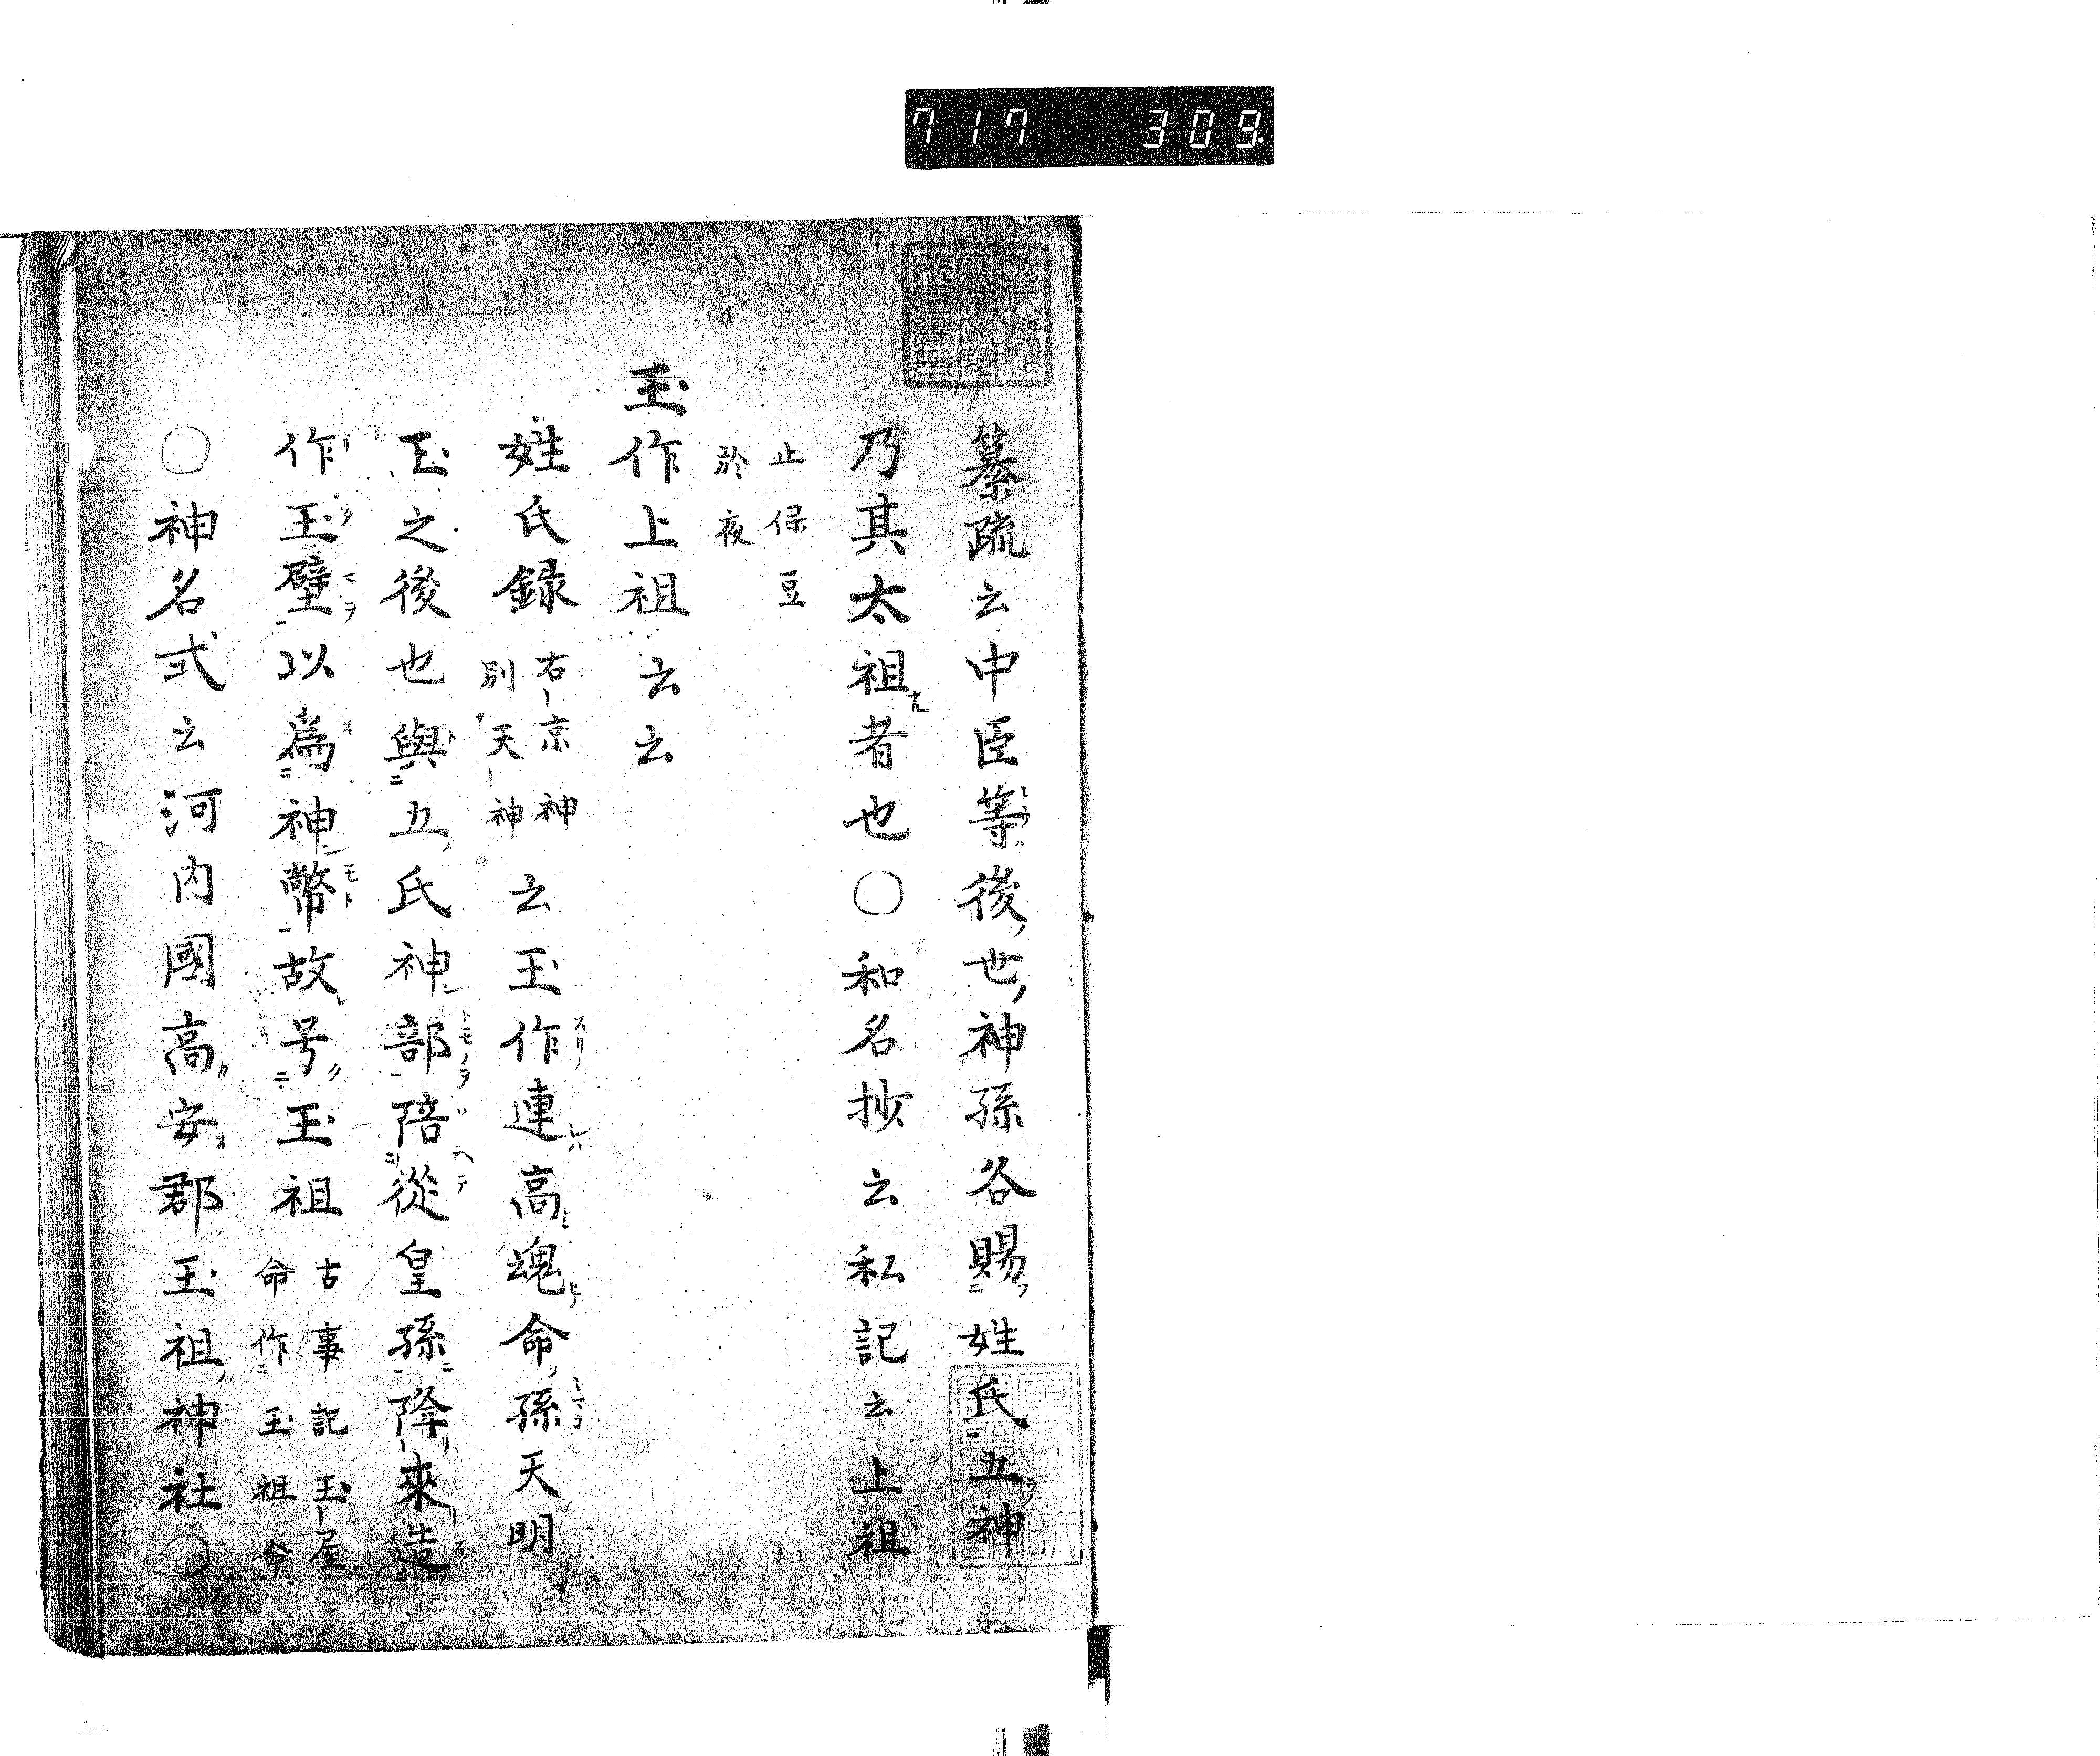 717 309
纂疏云中臣等後世神孫各賜姓氏五神
乃其太祖者也〇和名抄云私記云上祖
止保豆
於夜
玉作上祖云云
姓氏録右京神別天神云玉作連高魂命孫天明
玉之後也與五氏神部陪從皇孫降來造
作玉璧以爲神幣故号玉祖古事記玉屋命作玉祖命
〇神名式云河内國高安郡玉祖神社〇